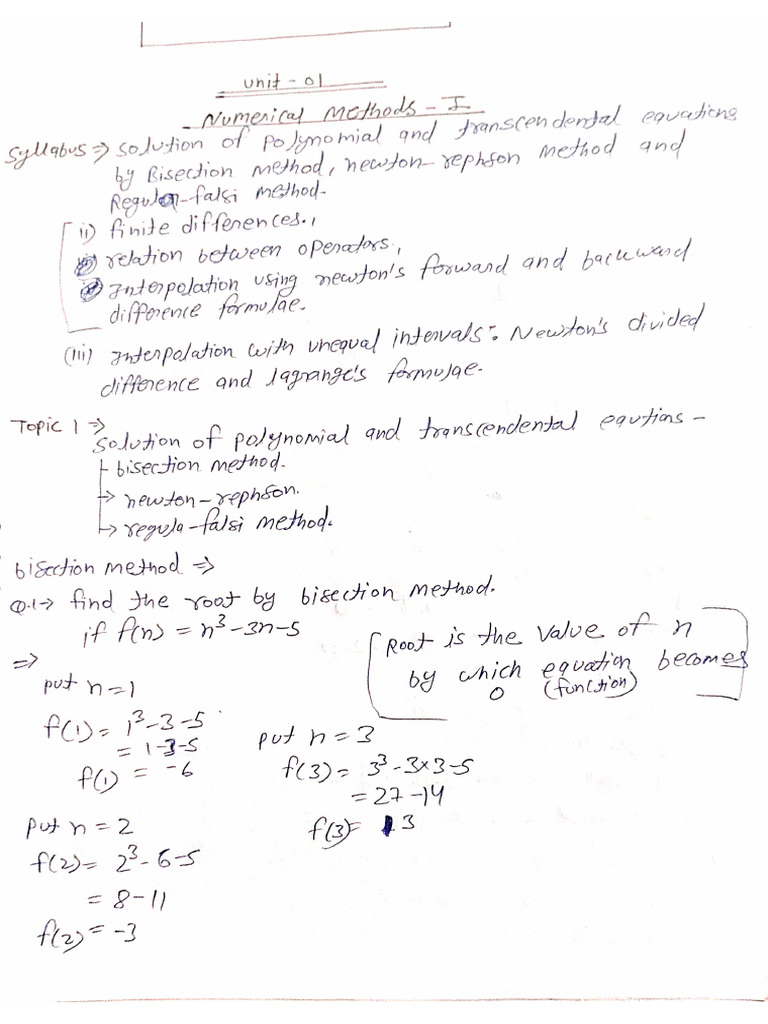 Unit - 01
Numerical Methods - I
Syllabus ⇒ solution of polynomial and transcendental equations
by Bisection method, newton-rephson method and
Regula-falsi method.
ii) finite differences.,
relation between operators,
Interpolation using newton's forward and backward
difference formulae.
(iii) Interpolation with unequal intervals: Newton's divided
difference and lagrange's formulae.
Topic 1 ⇒
solution of polynomial and transcendental equtions -
bisection method.
→ newton-rephson.
→ regula-falsi method.
bisection method ⇒
Q.1→ find the root by bisection method.
if f(n) = n³-3n-5
[Root is the value of n
by which equation becomes
0 (function)]
⇒
put n=1
f(1) = 1³-3-5
= 1-3-5
f(1) = -6
put n = 2
f(2) = 2³-6-5
= 8-11
f(2) = -3
put n = 3
f(3) = 3³-3×3-5
= 27-14
f(3) = 13